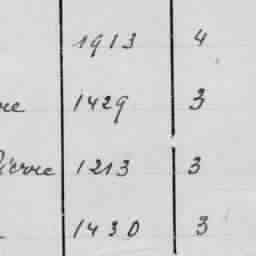 1913 4
re 1429 3
Pierre 1213 3
1430 3